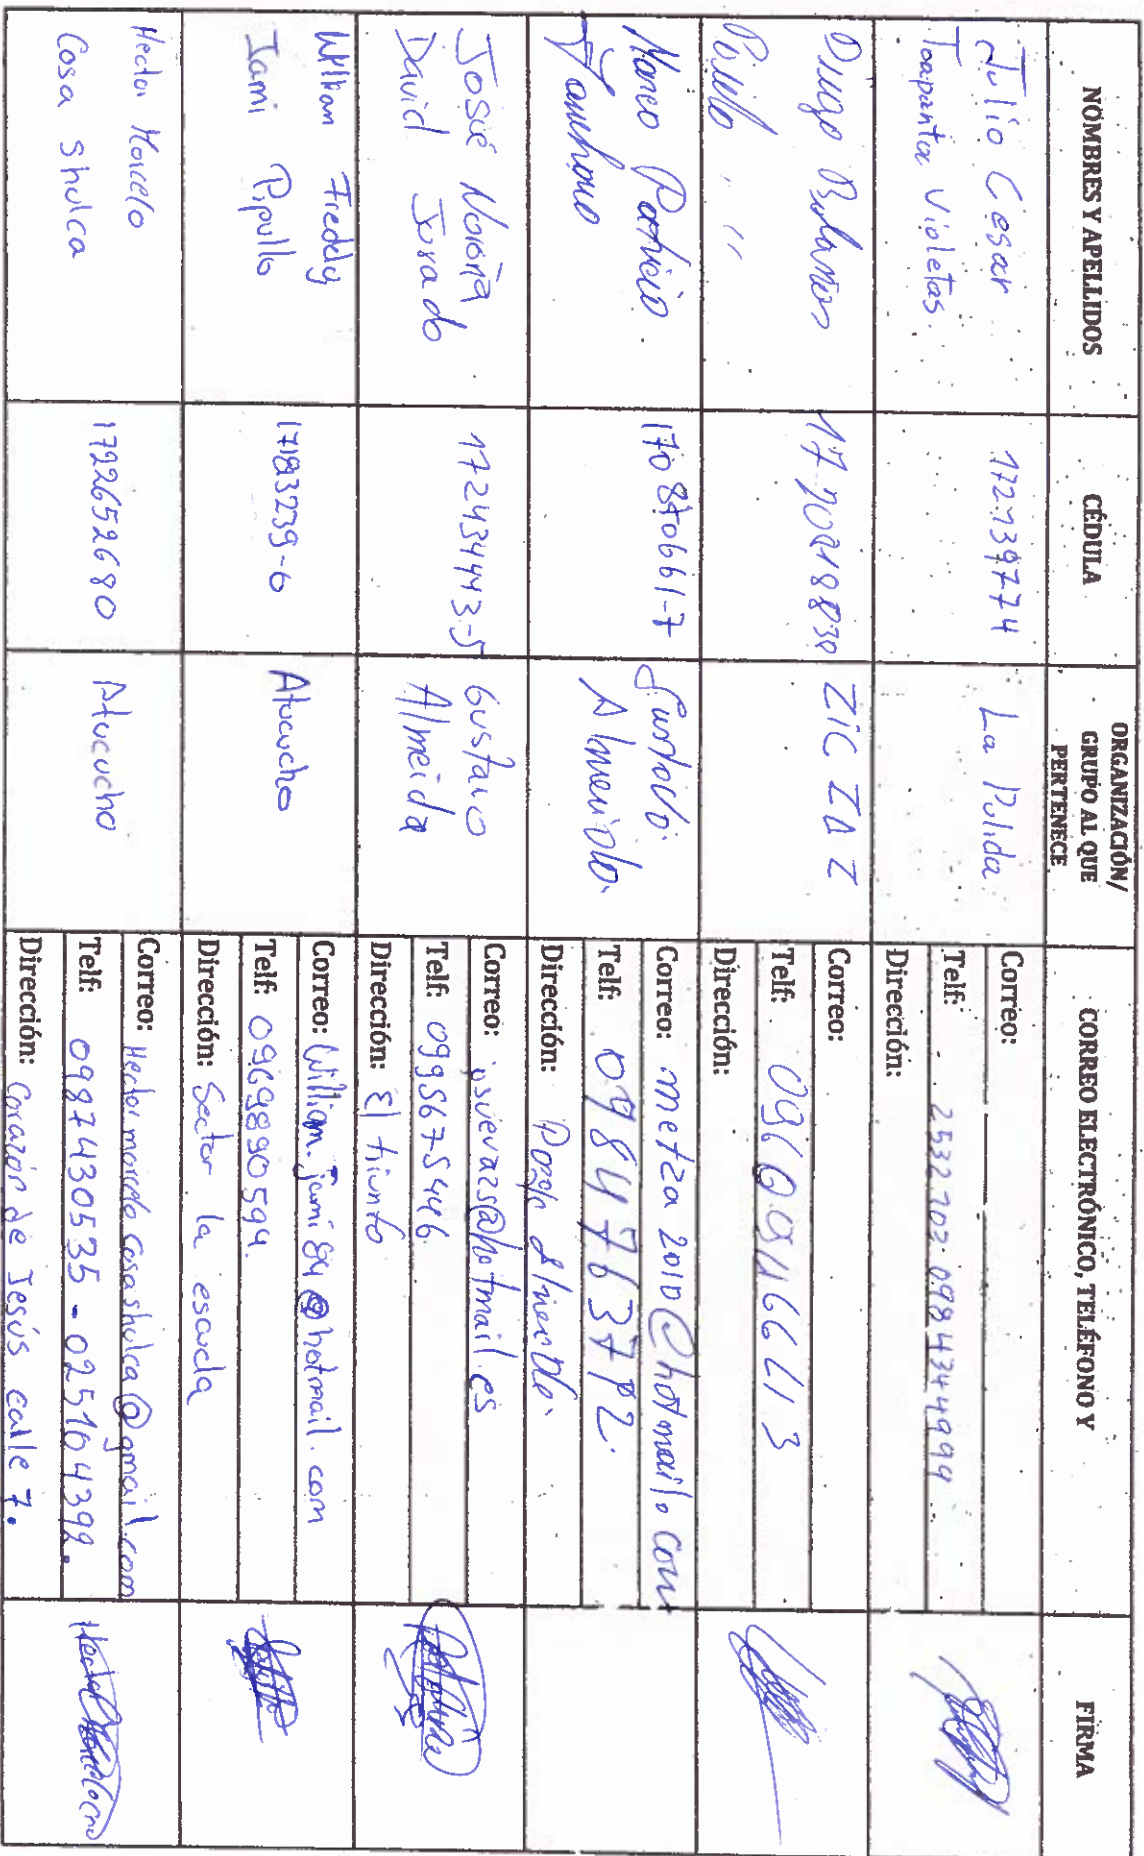 NOMBRES Y APELLIDOS
CÉDULA
ORGANIZACIÓN/
GRUPO AL QUE
PERTENECE
CORREO ELECTRÓNICO, TELÉFONO Y
FIRMA
Julio Cesar
Toapanta Violetas
172139774
La Pulida
Correo:
Telf: 2532702 0984344999
Dirección:
Diego Bolaños
ZIC ZA Z
Correo:
Telf:
Dirección:
Marco Patricio
170870661-7
Gustavo
Almeida
Correo: metza2010@hotmail.com
Telf: 0984763772
Dirección:
José Noroña
David Jurado
172434443-5
Gustavo
Almeida
Correo: josuevazs@hotmail.es
Telf: 0995675446
Dirección: El triunfo
William Freddy
Jami Pipullo
171823239-6
Atucucho
Correo: William.jami84@hotmail.com
Telf: 0969890594
Dirección: Sector la escuela
Hector Marcelo
Cosa Shulca
1722652680
Atucucho
Correo: Hectormarcelocosashulca@gmail.com
Telf: 0987430535 - 025104392.
Dirección: Corazón de Jesús calle 7.